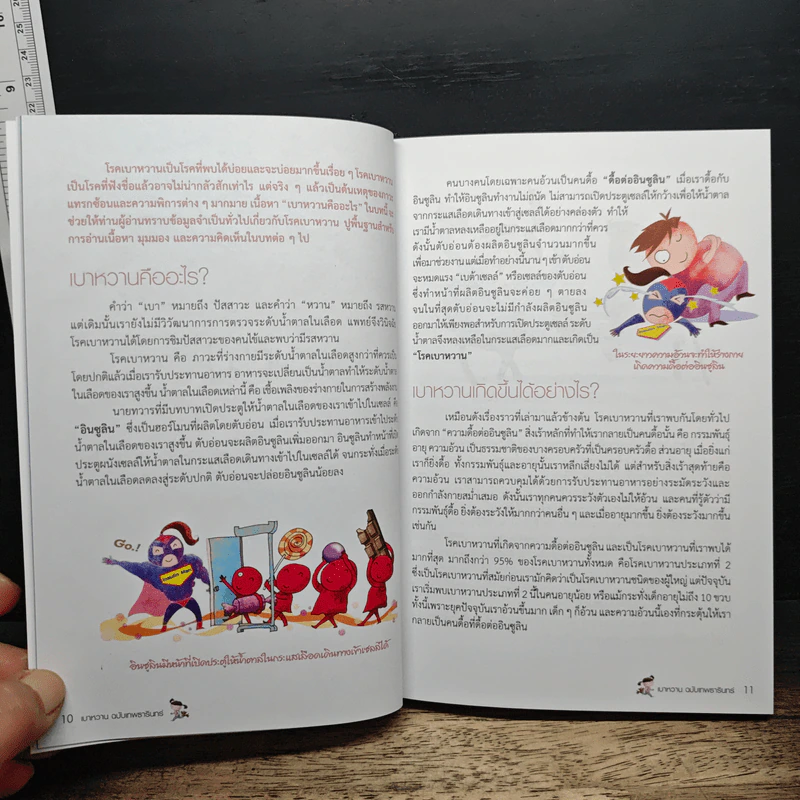 โรคเบาหวานเป็นโรคที่พบได้บ่อยและจะบ่อยมากขึ้นเรื่อย ๆ โรคเบาหวาน
เป็นโรคที่ฟังชื่อแล้วอาจไม่น่ากลัวสักเท่าไร แต่จริง ๆ แล้วเป็นต้นเหตุของภาวะ
แทรกซ้อนและความพิการต่าง ๆ มากมาย เนื้อหา "เบาหวานคืออะไร" ในบทนี้จะ
ช่วยให้ท่านผู้อ่านทราบข้อมูลจำเป็นทั่วไปเกี่ยวกับโรคเบาหวาน ปูพื้นฐานสำหรับ
การอ่านเนื้อหา มุมมอง และความคิดเห็นในบทต่อ ๆ ไป
เบาหวานคืออะไร?
คำว่า "เบา" หมายถึง ปัสสาวะ และคำว่า "หวาน" หมายถึง รสหวาน
แต่เดิมนั้นเรายังไม่มีวิวัฒนาการการตรวจระดับน้ำตาลในเลือด แพทย์จึงวินิจฉัย
โรคเบาหวานได้โดยการชิมปัสสาวะของคนไข้และพบว่ามีรสหวาน
โรคเบาหวาน คือ ภาวะที่ร่างกายมีระดับน้ำตาลในเลือดสูงกว่าที่ควรเป็น
โดยปกติแล้วเมื่อเรารับประทานอาหาร อาหารจะเปลี่ยนเป็นน้ำตาลทำให้ระดับน้ำตาล
ในเลือดของเราสูงขึ้น น้ำตาลในเลือดเหล่านี้ คือ เชื้อเพลิงของร่างกายในการสร้างพลังงาน
นายทวารที่มีบทบาทเปิดประตูให้น้ำตาลในเลือดของเราเข้าไปในเซลล์ คือ
"อินซูลิน" ซึ่งเป็นฮอร์โมนที่ผลิตโดยตับอ่อน เมื่อเรารับประทานอาหารเข้าไประดับ
น้ำตาลในเลือดของเราสูงขึ้น ตับอ่อนจะผลิตอินซูลินเพิ่มออกมา อินซูลินทำหน้าที่เปิด
ประตูผนังเซลล์ให้น้ำตาลในกระแสเลือดเดินทางเข้าไปในเซลล์ได้ จนกระทั่งเมื่อระดับ
น้ำตาลในเลือดลดลงสู่ระดับปกติ ตับอ่อนจะปล่อยอินซูลินน้อยลง
Go..!
อินซูลินมีหน้าที่เปิดประตูให้น้ำตาลในกระแสเลือดเดินทางเข้าเซลล์ได้
10 เบาหวาน ฉบับเทพธารินทร์
คนบางคนโดยเฉพาะคนอ้วนเป็นคนดื้อ "ดื้อต่ออินซูลิน" เมื่อเราดื้อกับ
อินซูลิน ทำให้อินซูลินทำงานไม่ถนัด ไม่สามารถเปิดประตูเซลล์ให้กว้างเพื่อให้น้ำตาล
จากกระแสเลือดเดินทางเข้าสู่เซลล์ได้อย่างคล่องตัว ทำให้
เรามีน้ำตาลหลงเหลืออยู่ในกระแสเลือดมากกว่าที่ควร
ดังนั้นตับอ่อนต้องผลิตอินซูลินจำนวนมากขึ้น
เพื่อมาช่วยงาน แต่เมื่อทำอย่างนี้นาน ๆ เข้า ตับอ่อน
จะหมดแรง "เบต้าเซลล์" หรือเซลล์ของตับอ่อน
ซึ่งทำหน้าที่ผลิตอินซูลินจะค่อย ๆ ตายลง
จนในที่สุดตับอ่อนจะไม่มีกำลังผลิตอินซูลิน
ออกมาให้เพียงพอสำหรับการเปิดประตูเซลล์ ระดับ
น้ำตาลจึงหลงเหลือในกระแสเลือดมากและเกิดเป็น
"โรคเบาหวาน"
ในระยะยาวความอ้วนจะทำให้ร่างกาย
เกิดความดื้อต่ออินซูลิน
เบาหวานเกิดขึ้นได้อย่างไร?
เหมือนดังเรื่องราวที่เล่ามาแล้วข้างต้น โรคเบาหวานที่เราพบกันโดยทั่วไป
เกิดจาก "ความดื้อต่ออินซูลิน" สิ่งเร้าหลักที่ทำให้เรากลายเป็นคนดื้อนั้น คือ กรรมพันธุ์
อายุ ความอ้วน เป็นธรรมชาติของบางครอบครัวที่เป็นครอบครัวดื้อ ส่วนอายุ เมื่อยิ่งแก่
เราก็ยิ่งดื้อ ทั้งกรรมพันธุ์และอายุนั้นเราหลีกเลี่ยงไม่ได้ แต่สำหรับสิ่งเร้าสุดท้ายคือ
ความอ้วน เราสามารถควบคุมได้ด้วยการรับประทานอาหารอย่างระมัดระวังและ
ออกกำลังกายสม่ำเสมอ ดังนั้นเราทุกคนควรระวังตัวเองไม่ให้อ้วน และคนที่รู้ตัวว่ามี
กรรมพันธุ์ดื้อ ยิ่งต้องระวังให้มากกว่าคนอื่น ๆ และเมื่ออายุมากขึ้น ยิ่งต้องระวังมากขึ้น
เช่นกัน
โรคเบาหวานที่เกิดจากความดื้อต่ออินซูลิน และเป็นโรคเบาหวานที่เราพบได้
มากที่สุด มากถึงกว่า 95% ของโรคเบาหวานทั้งหมด คือโรคเบาหวานประเภทที่ 2
ซึ่งเป็นโรคเบาหวานที่สมัยก่อนเรามักคิดว่าเป็นโรคเบาหวานชนิดของผู้ใหญ่ แต่ปัจจุบัน
เราเริ่มพบเบาหวานประเภทที่ 2 นี้ในคนอายุน้อย หรือแม้กระทั่งเด็กอายุไม่ถึง 10 ขวบ
ทั้งนี้เพราะยุคปัจจุบันเราอ้วนขึ้นมาก เด็ก ๆ ก็อ้วน และความอ้วนนี้เองที่กระตุ้นให้เรา
กลายเป็นคนดื้อที่ดื้อต่ออินซูลิน
เบาหวาน ฉบับเทพธารินทร์ 11